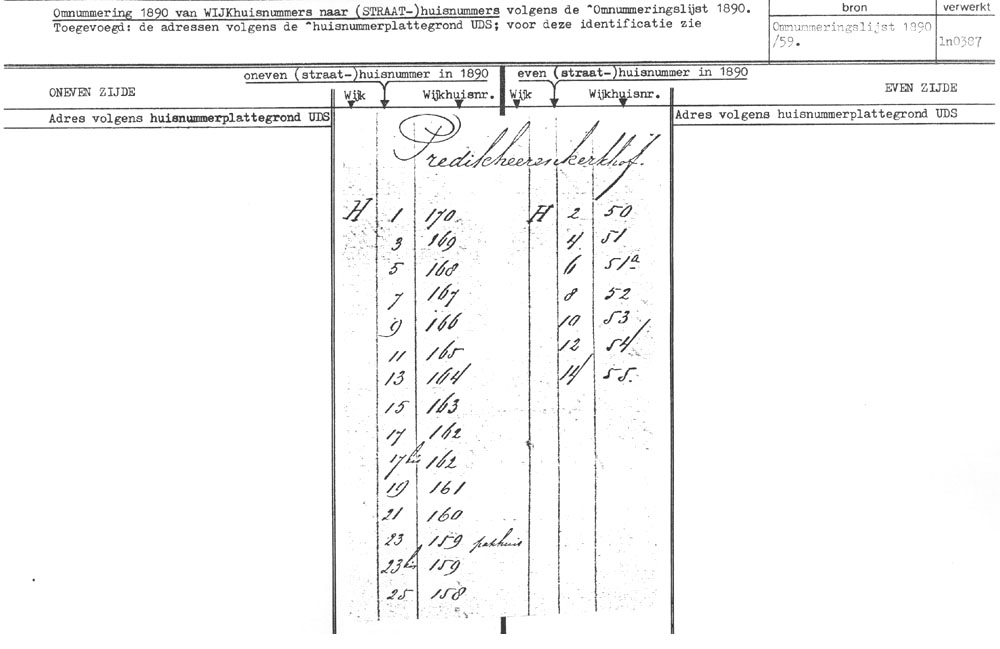 Omnummering 1890 van WIJKhuisnummers naar (STRAAT-)huisnummers volgens de ^Omnummeringslijst 1890.
Toegevoegd: de adressen volgens de ^huisnummerplattegrond UDS; voor deze identificatie zie
bron
verwerkt
Omnummeringslijst 1890
/59.
ln0387
oneven (straat-)huisnummer in 1890
even (straat-)huisnummer in 1890
ONEVEN ZIJDE
Wijk
Wijkhuisnr.
Wijk
Wijkhuisnr.
EVEN ZIJDE
Adres volgens huisnummerplattegrond UDS
Adres volgens huisnummerplattegrond UDS
Predikheerenkerkhof.
H 1 170 H 2 50
3 169 4 51
5 168 6 51a
7 167 8 52
9 166 10 53
11 165 12 54
13 164 14 55.
15 163
17 162
17bis 162
19 161
21 160
23 159 pakhuis
23bis 159
25 158